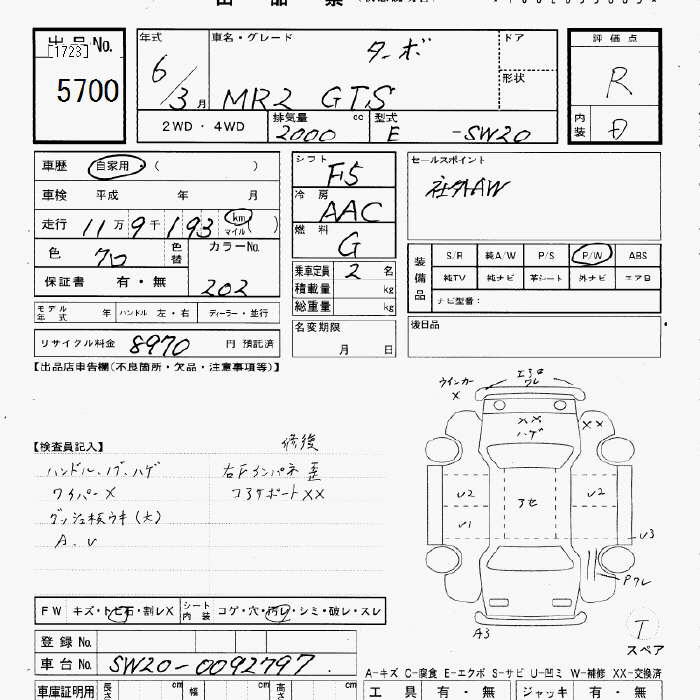 出品票
出品No.
[1723]
5700
年式
6/3月
車名・グレード
ターボ
MR2 GTS
ドア
形状
2WD・4WD
排気量 cc
2000
型式
E -SW20
評価点
R
内装
D
車歴 自家用・( )
車検 平成 年 月
走行 11万9千193 km マイル ( )
色 クロ 色替
カラーNo.
202
保証書 有・無
モデル年式 年 ハンドル 左・右 ディーラー・並行
リサイクル料金 8970 円 預託済
シフト F5
冷房 AAC
燃料 G
乗車定員 2 名
積載量 kg
総重量 kg
名変期限
月 日
セールスポイント
社外AW
装備品
S/R 純A/W P/S P/W ABS
純TV 純ナビ 革シート 外ナビ エアB
ナビ型番:
後日品
【出品店申告欄(不良箇所・欠品・注意事項等)】
【検査員記入】
修復
ハンドル、ノブ、ハゲ
ワイパーX
ダッシュ板ウキ(大)
A、U
右Fインパネ歪
コアサポートXX
ウインカー
X
エアロ
ワレ
XX
ハゲ
XX
U2
U1
アセ
U2
U3
Pワレ
A3
T
スペア
FW キズ・トビ石・割レX
シート内装 コゲ・穴・汚レ・シミ・破レ・スレ
登録No.
車台No. SW20-0092797
A-キズ C-腐食 E-エクボ S-サビ U-凹ミ W-補修 XX-交換済
車庫証明用 長さ cm 幅 cm 高さ cm
工具 有・無 ジャッキ 有・無